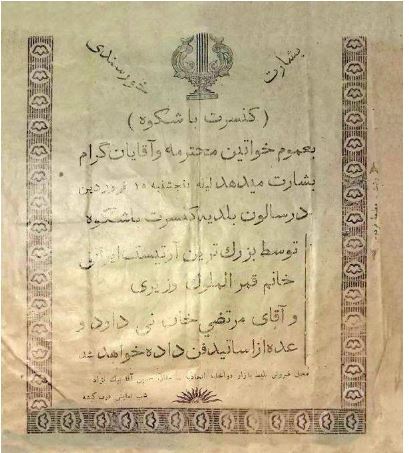 بشارت
خورسندی
( کنسرت با شکوه )
بعموم خواتین محترمه و آقایان گرام
بشارت میدهد لیله پنجشنبه ۱۵ فروردین
در سالون بلدیه کنسرت باشکوه
توسط بزرك ترین آرتیست
خانم قمر الملوك وزیری
و آقای مرتضی خان نی داود و
عده از اساتید فن داده خواهد شد
محل فروش بلیط بازار دواخانه
شب نمایش درب گیشه